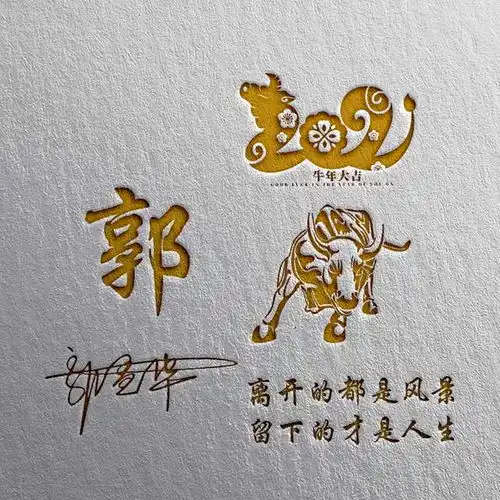 2021
牛年大吉
GOOD LUCK IN THE YEAR OF THE OX
郭
离开的都是风景
留下的才是人生